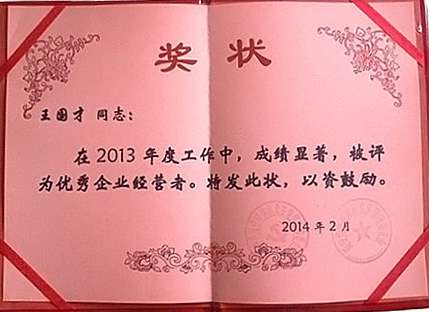 奖状
王国才 同志：
在2013年度工作中，成绩显著，被评
为优秀企业经营者。特发此状，以资鼓励。
2014年2月